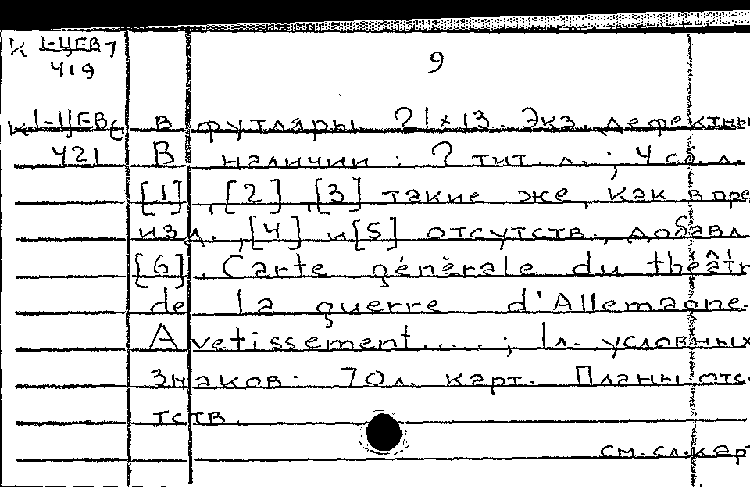 к I-ЦГВ7
419
9
к I-ЦГВ6 в футляры. 21x13. Экз. дефектны
421 В наличии: 2 тит. л.; 4 сл. л.
[1], [2], [3] такие же, как в пре
изд., [4] и [5] отсутств., добавл
[6]. Carte générale du théâtr
de la guerre d'Allemagne.
Avetissement....; 1л. условных
знаков. 70л. карт. Планы отс
тств.
см. сл. кар